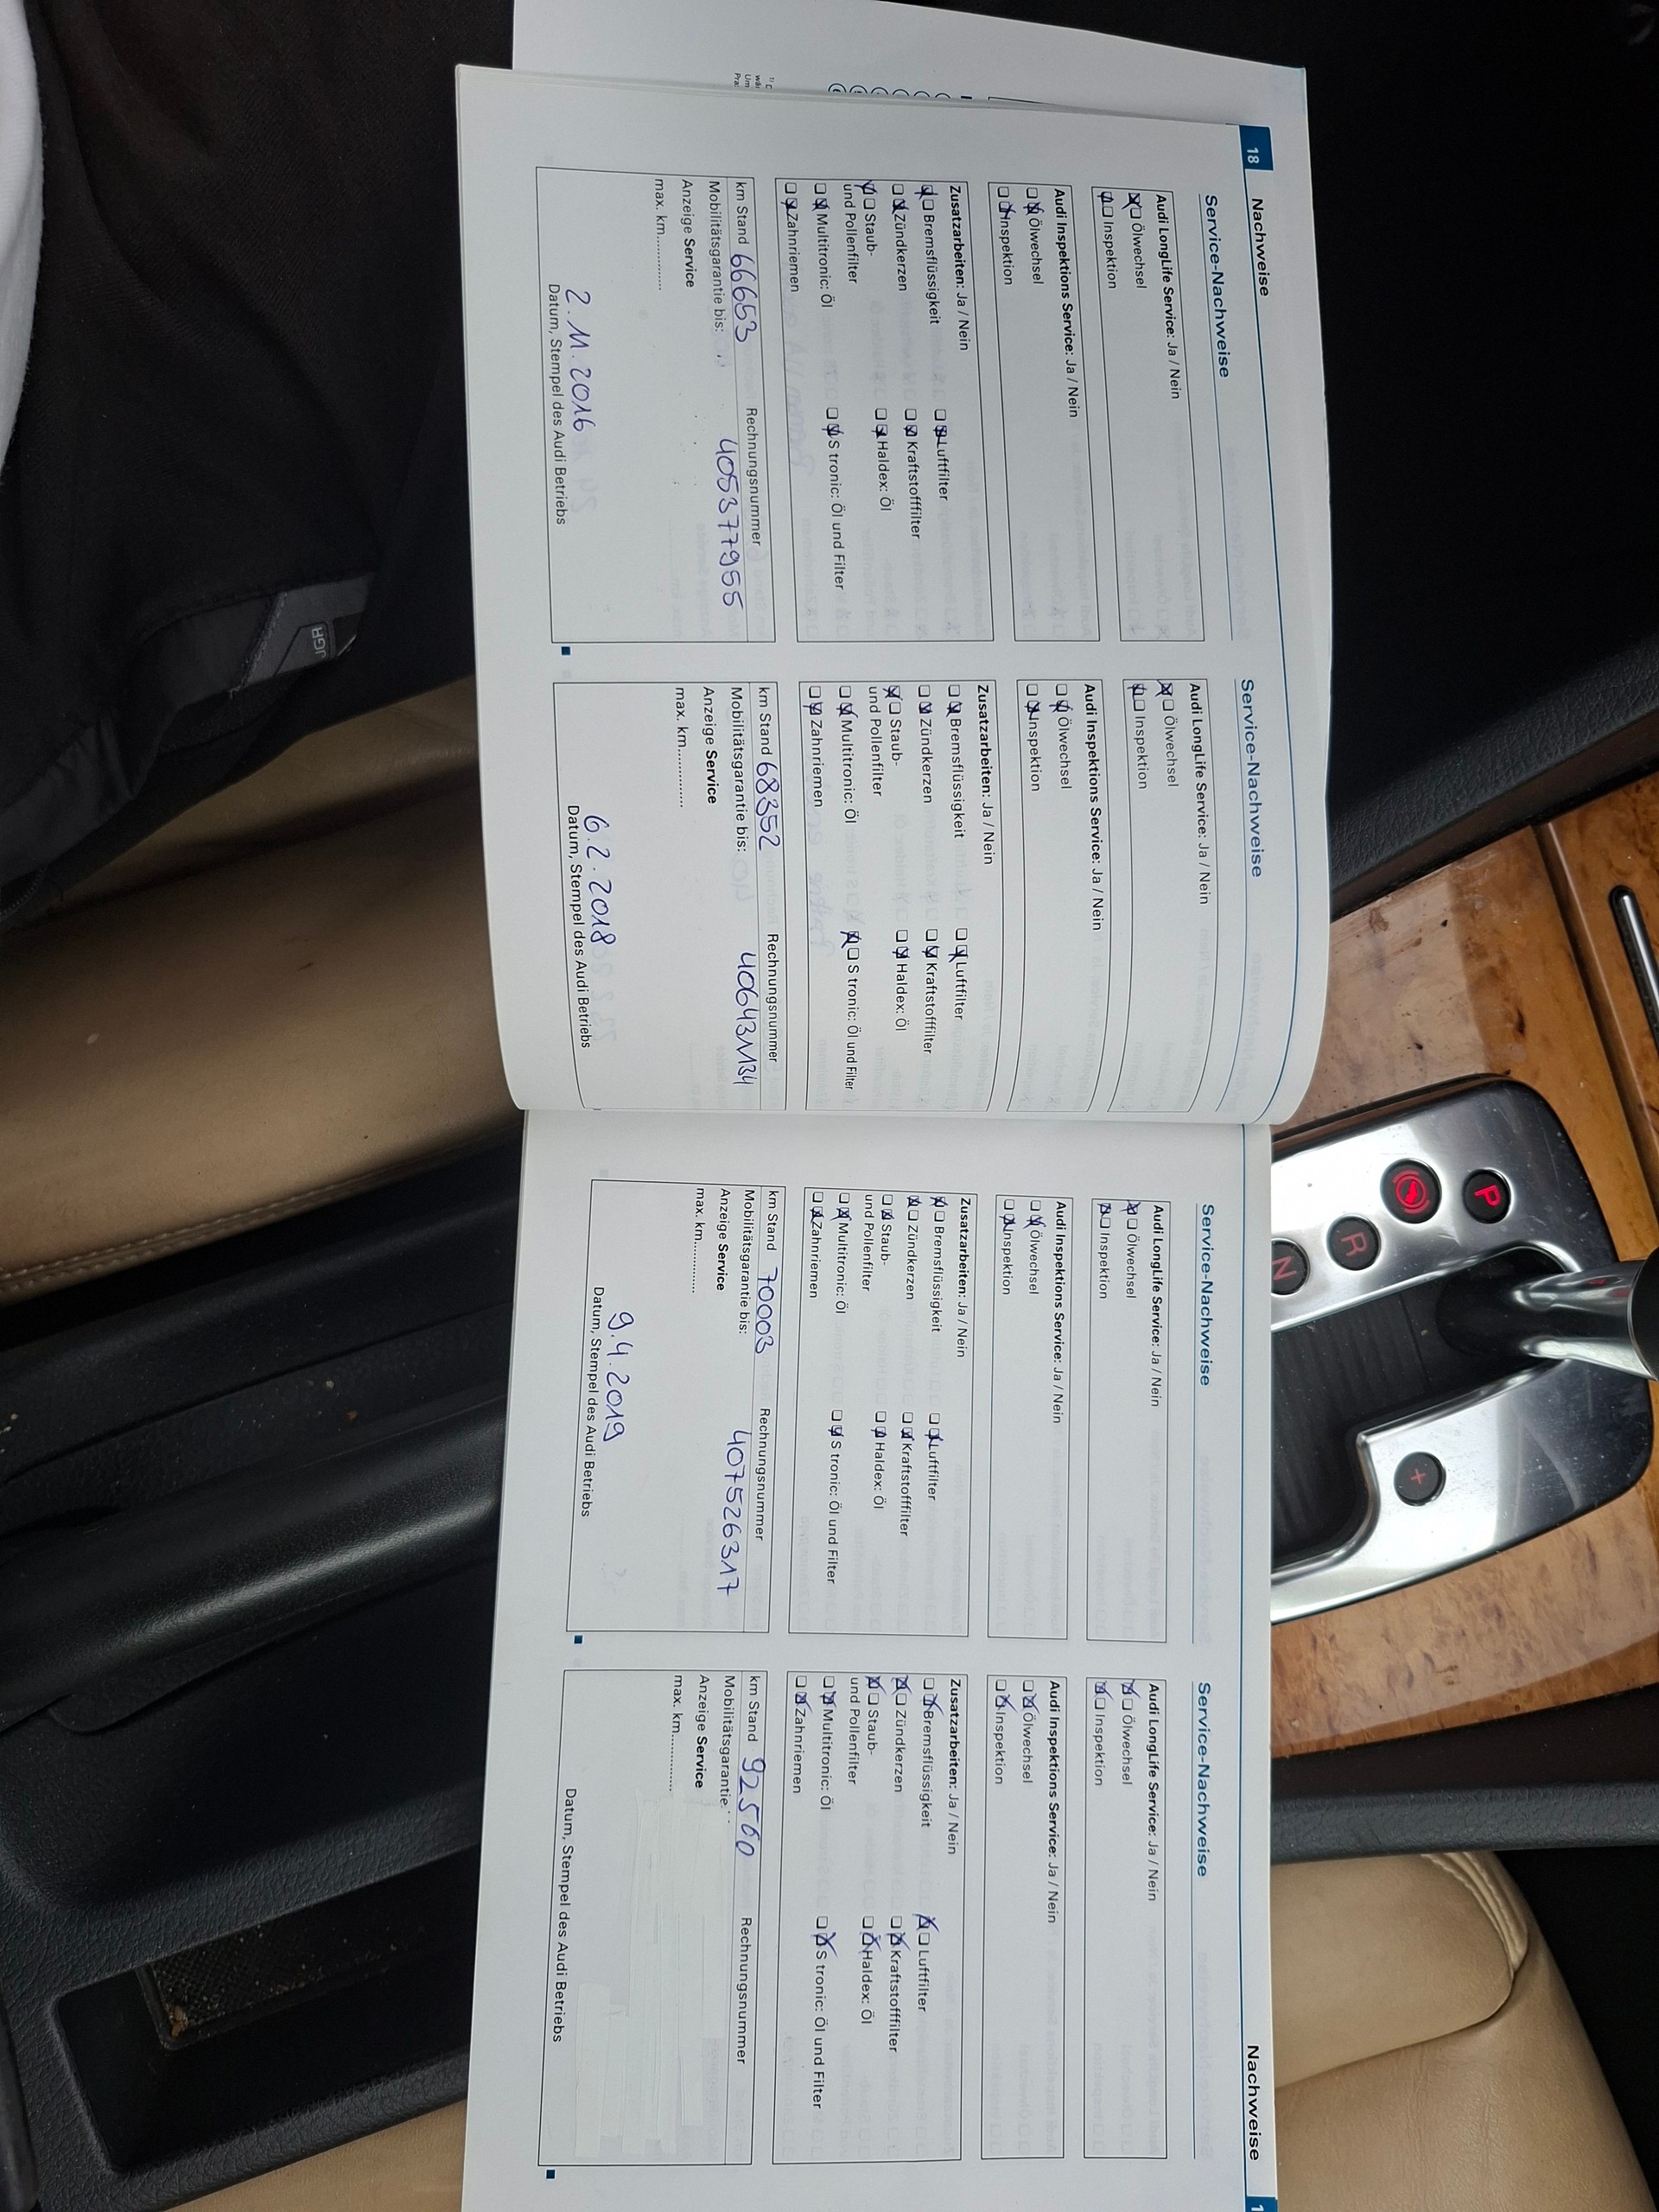 18
Nachweise
Service-Nachweise
Audi LongLife Service: Ja / Nein
Ölwechsel
Inspektion
Audi Inspektions Service: Ja / Nein
Ölwechsel
Inspektion
Zusatzarbeiten: Ja / Nein
Bremsflüssigkeit Luftfilter
Zündkerzen Kraftstofffilter
Staub- Haldex: Öl
und Pollenfilter
Multitronic: Öl S tronic: Öl und Filter
Zahnriemen
km Stand 66653 Rechnungsnummer
Mobilitätsgarantie bis: 405377955
Anzeige Service
max. km.............
2.11.2016
Datum, Stempel des Audi Betriebs
Service-Nachweise
Audi LongLife Service: Ja / Nein
Ölwechsel
Inspektion
Audi Inspektions Service: Ja / Nein
Ölwechsel
Inspektion
Zusatzarbeiten: Ja / Nein
Bremsflüssigkeit Luftfilter
Zündkerzen Kraftstofffilter
Staub- Haldex: Öl
und Pollenfilter
Multitronic: Öl S tronic: Öl und Filter
Zahnriemen
km Stand 68352 Rechnungsnummer
Mobilitätsgarantie bis: 406431134
Anzeige Service
max. km.............
6.2.2018
Datum, Stempel des Audi Betriebs
Service-Nachweise
Audi LongLife Service: Ja / Nein
Ölwechsel
Inspektion
Audi Inspektions Service: Ja / Nein
Ölwechsel
Inspektion
Zusatzarbeiten: Ja / Nein
Bremsflüssigkeit Luftfilter
Zündkerzen Kraftstofffilter
Staub- Haldex: Öl
und Pollenfilter
Multitronic: Öl S tronic: Öl und Filter
Zahnriemen
km Stand 70003 Rechnungsnummer
Mobilitätsgarantie bis: 407526317
Anzeige Service
max. km.............
9.4.2019
Datum, Stempel des Audi Betriebs
Nachweise
Service-Nachweise
Audi LongLife Service: Ja / Nein
Ölwechsel
Inspektion
Audi Inspektions Service: Ja / Nein
Ölwechsel
Inspektion
Zusatzarbeiten: Ja / Nein
Bremsflüssigkeit Luftfilter
Zündkerzen Kraftstofffilter
Staub- Haldex: Öl
und Pollenfilter
Multitronic: Öl S tronic: Öl und Filter
Zahnriemen
km Stand 92560 Rechnungsnummer
Mobilitätsgarantie
Anzeige Service
max. km.............
Datum, Stempel des Audi Betriebs
P
R
N
+